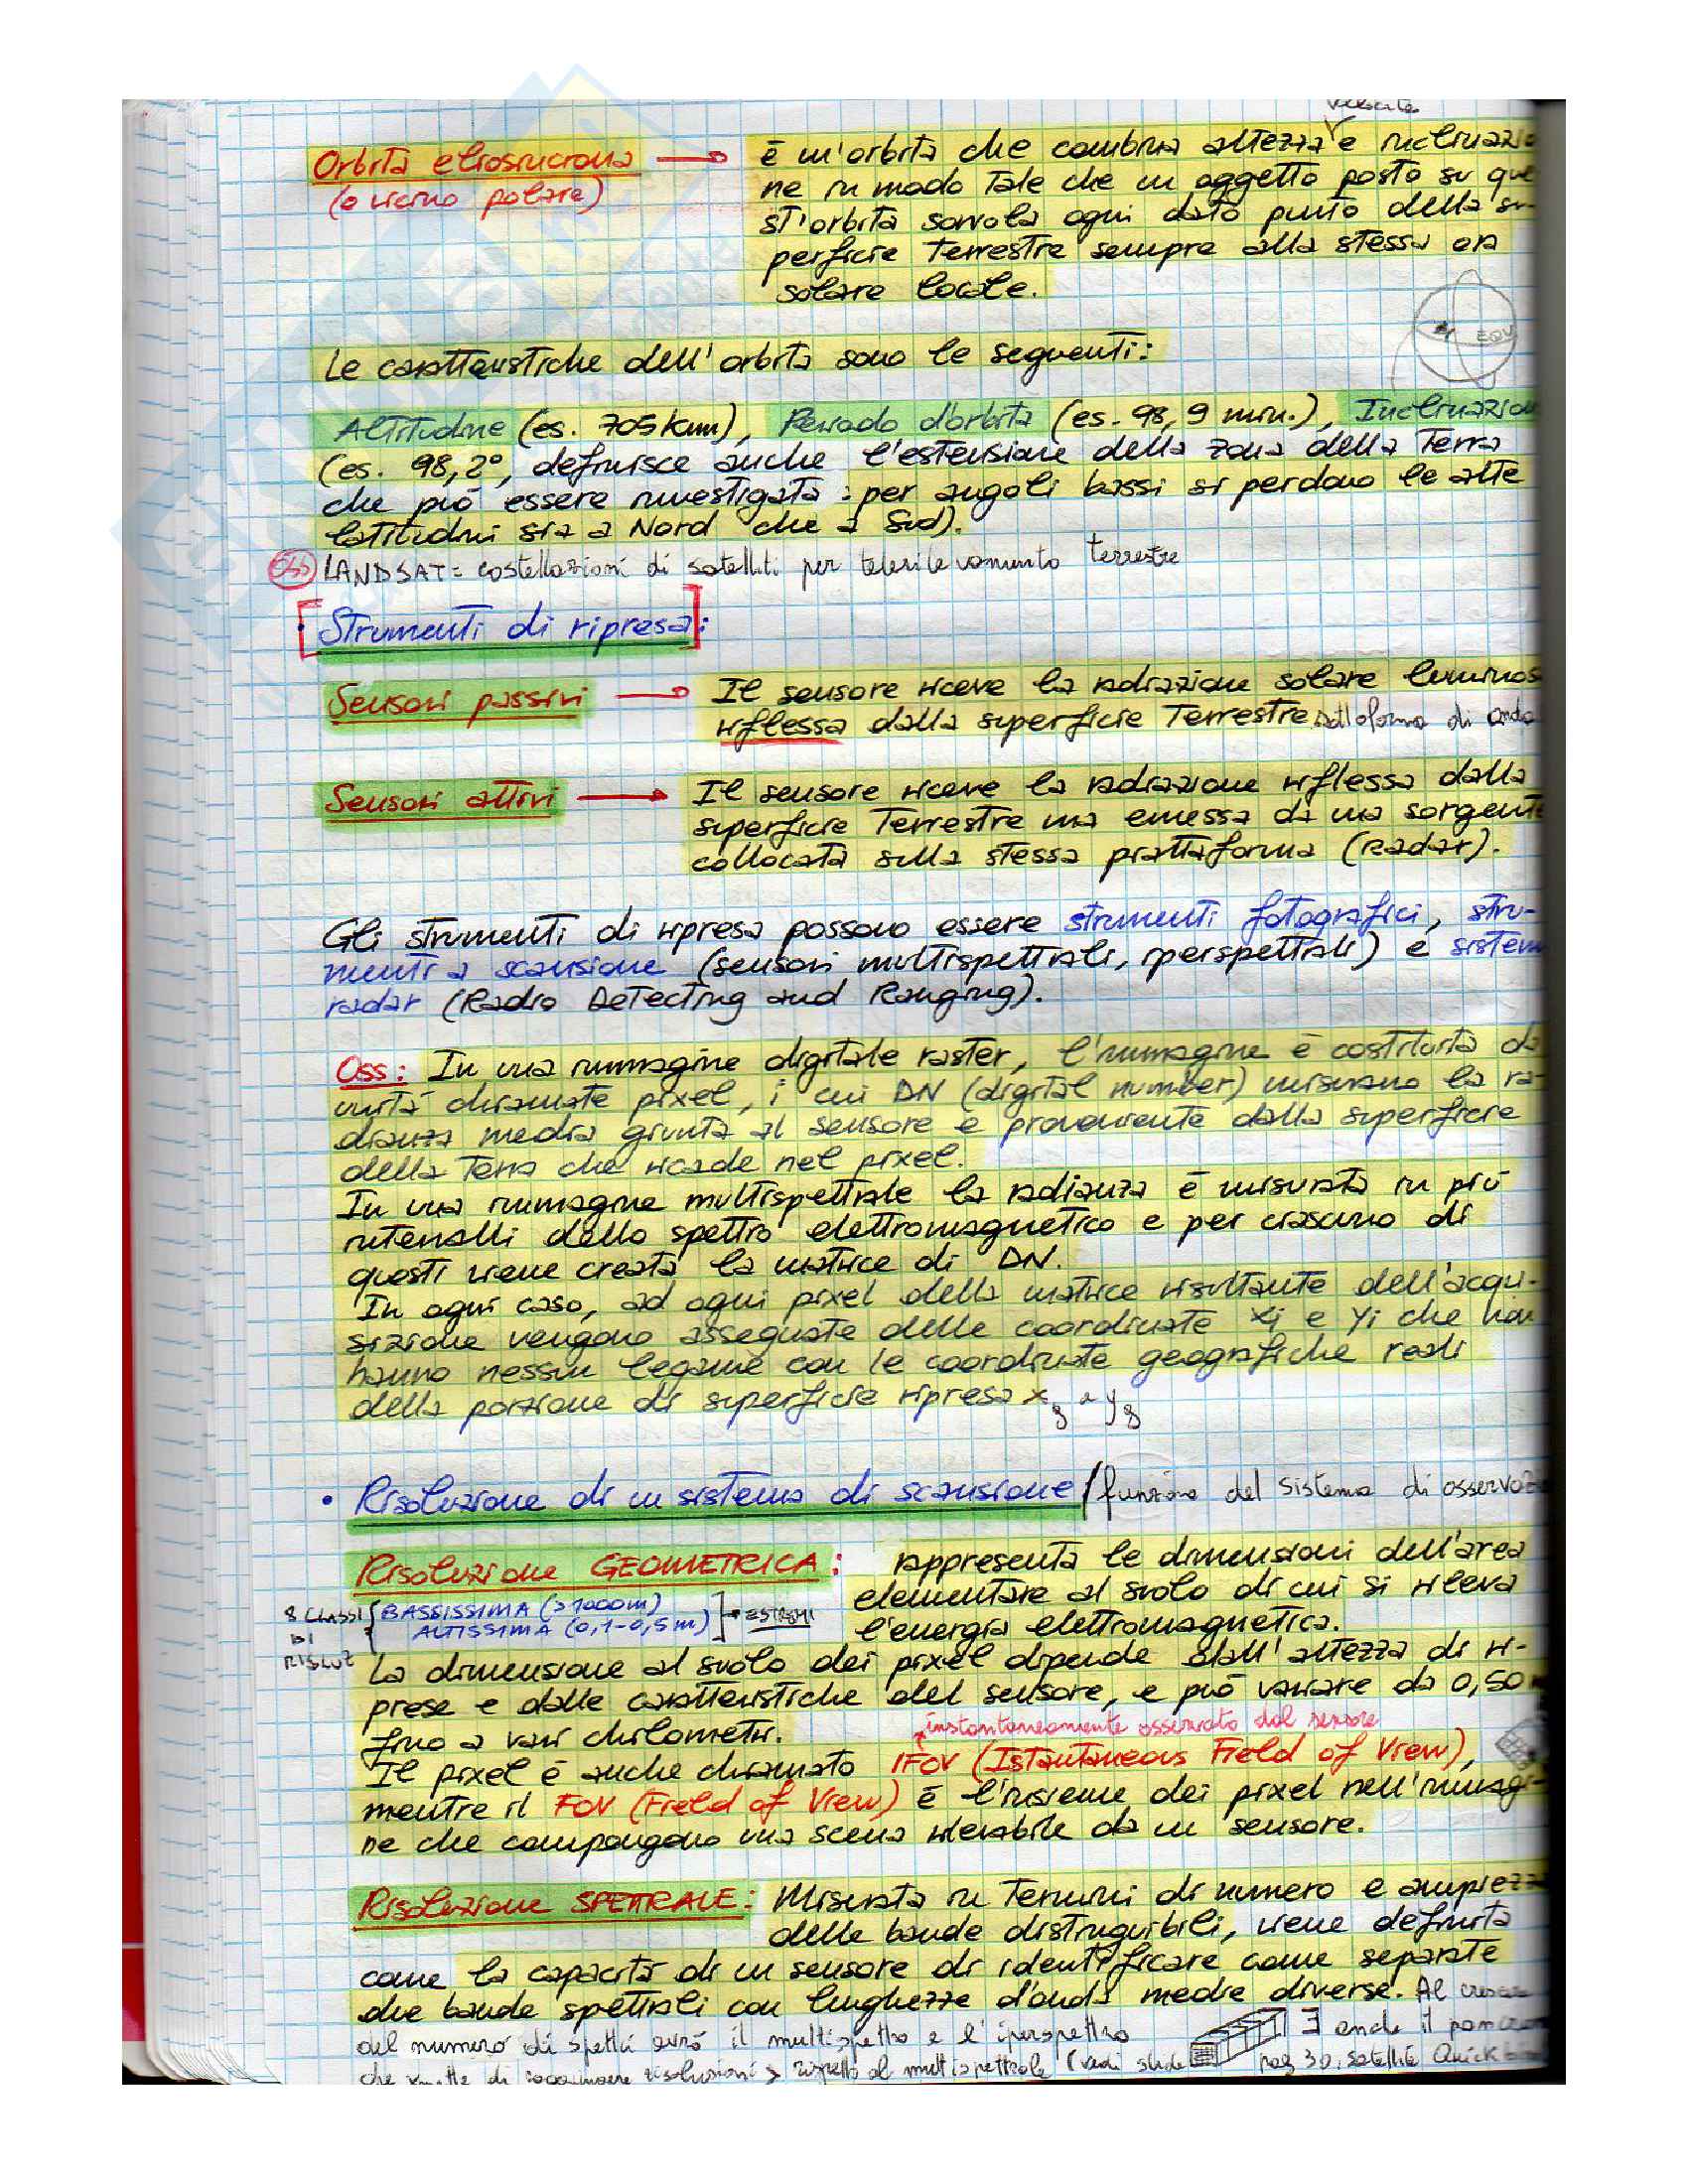 velocità
Orbita eliosincrona → è un'orbita che combina altezza e inclinazio
(o vicino polare) ne in modo tale che un oggetto posto su que
st'orbita sorvola ogni dato punto della su
perficie terrestre sempre alla stessa ora
solare locale.
EQU
Le caratteristiche dell'orbita sono le seguenti:
Altitudine (es. 705 km), Periodo d'orbita (es. 98,9 min.), Inclinazion
(es. 98,2°, definisce anche l'estensione della zona della Terra
che può essere investigata: per angoli bassi si perdono le alte
latitudini sia a Nord che a Sud).
Oss LANDSAT = costellazioni di satelliti per telerilevamento terrestre
[• Strumenti di ripresa]:
Sensori passivi → Il sensore riceve la radiazione solare luminos
riflessa dalla superficie terrestre sottoforma di onda
Sensori attivi → Il sensore riceve la radiazione riflessa dalla
superficie terrestre ma emessa da una sorgente
collocata sulla stessa piattaforma (radar).
Gli strumenti di ripresa possono essere strumenti fotografici, stru-
menti a scansione (sensori multispettrali, iperspettrali) e sistem
radar (Radio Detecting and Ranging).
Oss: In una immagine digitale raster, l'immagine è costituita da
unità chiamate pixel, i cui DN (digital number) misurano la ra-
dianza media giunta al sensore e proveniente dalla superficie
della Terra che ricade nel pixel.
In una immagine multispettrale la radianza è misurata in più
intervalli dello spettro elettromagnetico e per ciascuno di
questi viene creata la matrice di DN.
In ogni caso, ad ogni pixel della matrice risultante dell'acqui-
sizione vengono assegnate delle coordinate xi e yi che non
hanno nessun legame con le coordinate geografiche reali
della porzione di superficie ripresa xg e yg
• Risoluzione di un sistema di scansione / funzione del sistema di osservaz
Risoluzione GEOMETRICA: rappresenta le dimensioni dell'area
elementare al suolo di cui si rileva
l'energia elettromagnetica.
8 CLASSI DI RISLUZ { BASSISSIMA (>1000m)
ALTISSIMA (0,1-0,5m) ] → ESTREMI
La dimensione al suolo dei pixel dipende dall'altezza di ri-
prese e dalle caratteristiche del sensore, e può variare da 0,50
fino a vari chilometri.
instantaneamente osservato dal sensore
Il pixel è anche chiamato IFOV (Istantaneous Field of View),
mentre il FOV (Field of View) è l'insieme dei pixel nell'immagi-
ne che compongono una scena rilevabile da un sensore.
Risoluzione SPETTRALE: Misurata in termini di numero e ampiezz
delle bande distinguibili, viene definita
come la capacità di un sensore di identificare come separate
due bande spettrali con lunghezze d'onda medie diverse. Al crescere
del numero di spettri avrò il multispettro e l'iperspettro ∃ anche il pancro
che di raggiungere risoluzioni > rispetto al multispettrale (vedi slide pag 30, satellite Quick